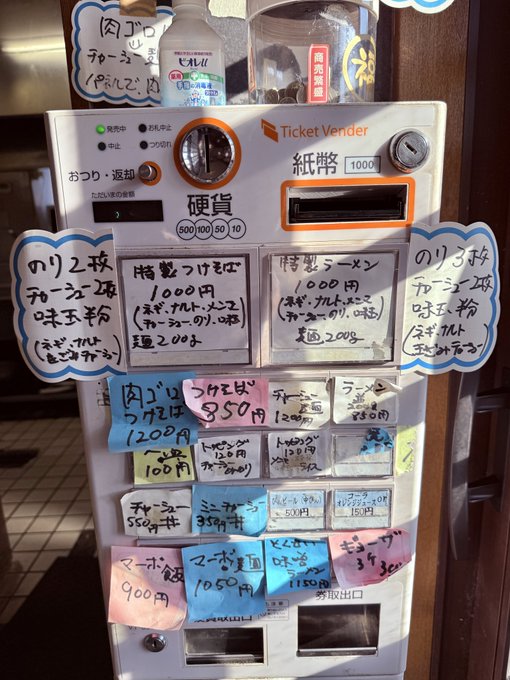 肉ゴロ
チャーシュー
商売繁盛
福
ビオレu
発売中
お札中止
中止
つり切れ
おつり・返却
ただいまの金額
Ticket Vender
硬貨
500 100 50 10
紙幣 1000
のり2枚
チャーシュー2枚
味玉、粉
(ネギ、ナルト
のり3枚
チャーシュー2枚
味玉、粉
(ネギ、ナルト
特製つけそば
1000円
(ネギ、ナルト、メンマ
(チャーシュー、のり、味玉)
麺200g
特製ラーメン
1000円
(ネギ、ナルト、メンマ
(チャーシュー、のり、味玉)
麺200g
肉ゴロ
つけそば
1200円
つけそば
850円
チャーシュー
麺
1200円
ラーメン
並
200g
850円
100円
トッピング
120円
トッピング
120円
チャーシュー
550円 丼
ミニチャーシュー
350円 丼
500円
コーラ
オレンジジュース
150円
マーボ飯
900円
マーボ麺
1050円
味噌
ラーメン
1150円
ギョーザ
3ケ
券取出口